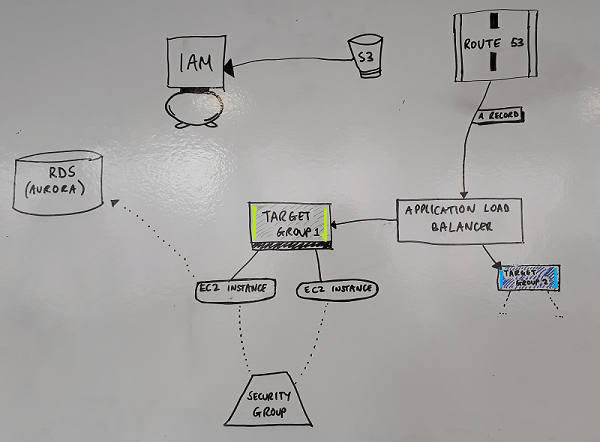 IAM
S3
ROUTE 53
A RECORD
RDS
(AURORA)
TARGET
GROUP 1
APPLICATION LOAD
BALANCER
TARGET
GROUP 2
EC2 INSTANCE
EC2 INSTANCE
SECURITY
GROUP